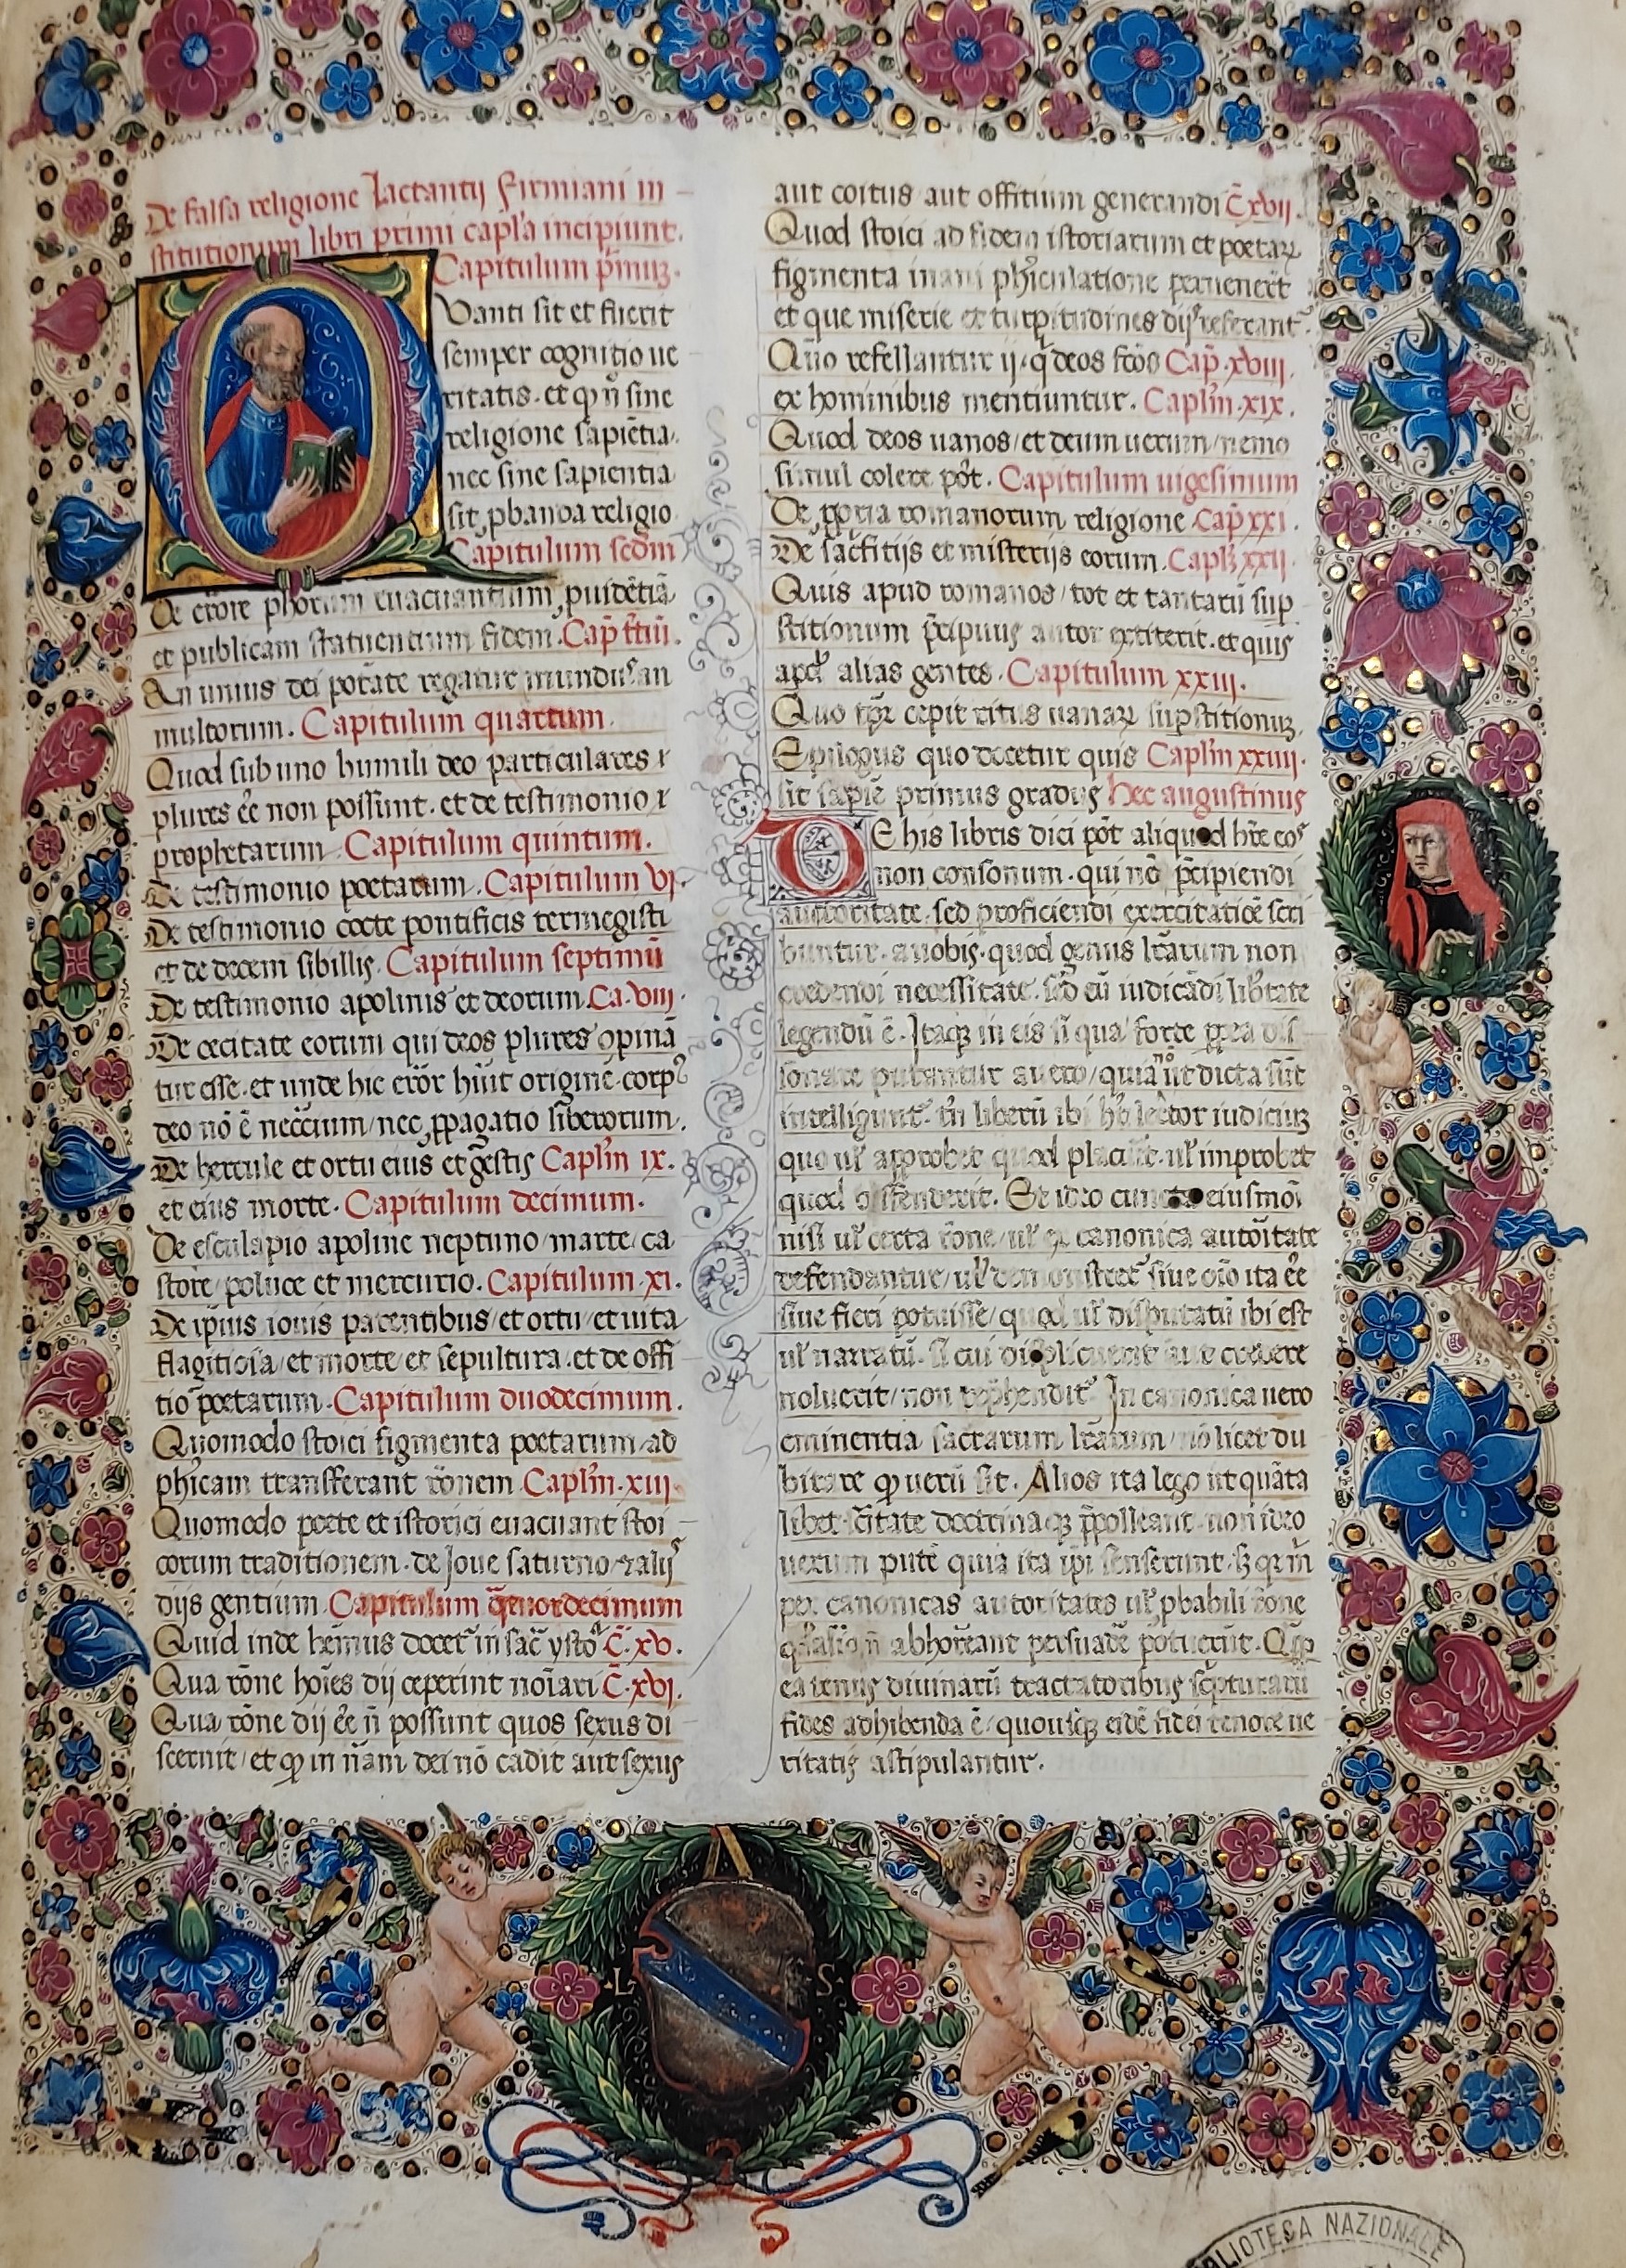 De falsa religione Lactantij Firmiani in
stitutionum libri primi capl'a incipiunt.
Capitulum p̄muʒ.
Quanti sit et fuerit
semper cognitio ue
ritatis. et q̄ n̄ sine
religione sapiētia.
nec sine sapientia
sit ꝓbanda religio
Capitulum scd̄m
De errore ph̄orum euacuantium ꝓuidētiā
et publicam statuentium fidem. Cap̄ t̄tiū.
An unius dei potāte regatur mundus an
multorum. Capitulum quartum.
Quod sub uno humili deo particulares ⁊
plures ēē non possunt. et de testimonio ⁊
prophetarum Capitulum quintum.
De testimonio poetarum. Capitulum vj.
De testimonio docte pontificis termegisti
et de decem sibillis. Capitulum septimū
De testimonio apolinis et deorum. Ca. viii.
De cecitate eorum qui deos plures opinā
tur esse. et unde hic errōr hūit originē. corpꝰ
deo nō ē neccīum / nec ꝓpagatio liberorum.
De hercule et ortu eius et gestis Capl'm ix.
et eius morte. Capitulum decimum.
De esculapio apoline neptuno / marte / ca
store / poluce et mercurio. Capitulum. xi.
De ipsius iouis parentibus / et ortu / et uita
flagitiosa / et morte et sepultura. et de offi
tio poetarum. Capitulum duodecimum.
Quomodo stoici figmenta poetarum / ad
phīcam transferant rōnem. Capl'm. xiii.
Quomodo poete et istorici euacuant stoi
corum traditionem. de Joue saturno / ⁊ alijs
dijs gentium. Capitulum q̄tuordecimum
Quid inde hemus docet' in sac̄ ysto' C̄. xv.
Qua rōne hoīes dij ceperint noīari C̄. xvj.
Qua rōne dij ēē n̄ possunt quos sexus di
scernit / et q̄ in nām dei nō cadit aut sexus
aut coitus aut offitium generandi C̄ xvij.
Quod stoici ad fidem istoriarum et poetaꝝ
figmenta inani ph'iculatione peruenerēt
et que miserie et turpitudines dijs referant'.
Quo refellantur ij. q̄ deos fcōs Cap̄. xviii.
ex hominibus mentiuntur. Capl'm. xix.
Quod deos uanos / et deum uerum / nemo
simul colere pōt. Capitulum uigesimum
De ꝓpria romanorum religione. Cap̄ xxi.
De sacrifitijs et misterijs eorum. Capl'ʒ xxij.
Quis apud romanos / tot et tantarū sup
stitionum p̄cipuus autor extiterit. et quis
apd' alias gentes. Capitulum xxiii.
Quo tp̄r cepit ritus uanaꝝ sup̄stitionuʒ.
Epilogus quo docetur quis Capl'm xxiiij.
sit sapiē primus gradus hec augustinus
DE his libris dici pōt aliquod hr̄e co'
non consonum. qui nō p̄cipiendi
auctoritate. sed proficiendi exercitatiōe scri
buntur. a nobis. quod genus lr̄arum non
credendi necessitate. sed cū iudicādi lib'tate
legendū ē. Itaqʒ in eis si qua forte ꝓpea dis
sonare putantur a uero / quia nō ut dicta sūt
intelligunt'. tn̄ liberū ibi h'ʒ lector iudiciuʒ
quo ul' approbet quod placuit. ul' improbet
quod offenderit. Et ideo cuncta eiusmōi
nisi ul' certa rōne / ul' ex canonica autoītate
defendantur / ul' demonstret' siue oīo ita ēē
siue fieri potuisse / quod ul' disputatū ibi est
ul' narratū. si cui displicuerit aut credere
noluerit / non rep̄hendit' In canonica uero
eminentia sacrarum lr̄arum / nō licet du
bitare q̄ uerū sit. Alios ita lego ut quāta
libet scītate doctrinaqʒ p̄polleant. non ideo
uerum putē quia ita ip̄i senserunt. sʒ q̄ m̄
per canonicas autoritates ul' ꝓbabili rōne
abhorreant persuadē potuerūt.
eatenus diuinarū tractatoribus sc̄pturarū
fides adhibenda ē / quousqʒ eidē fidei tenore ue
ritatis astipulantur.
·L· S·
BIBLIOTECA NAZIONALE